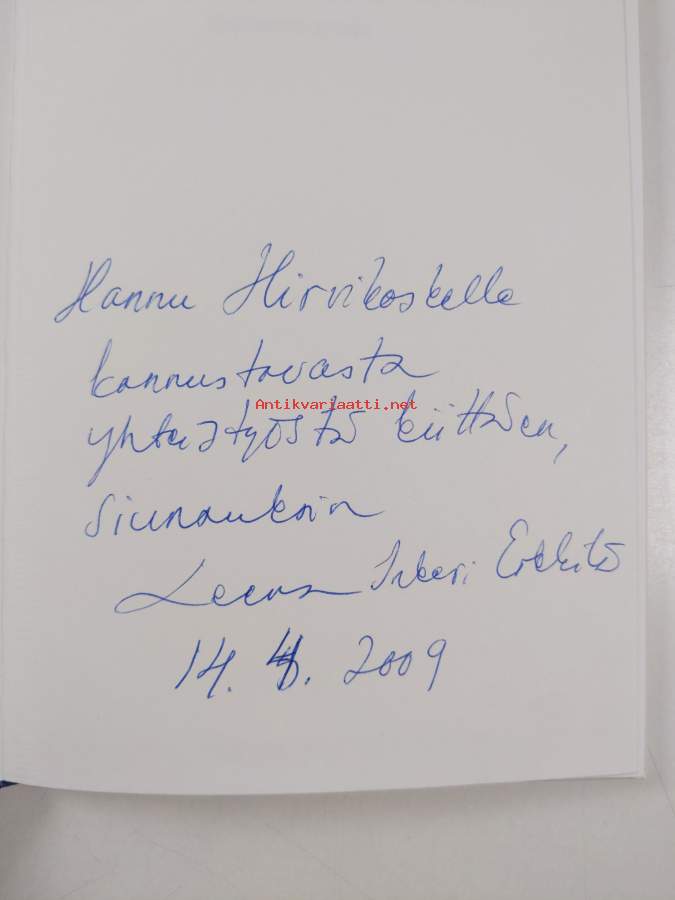 Hannu Hirvikoskelle
kannustavasta
Antikvariaatti.net
yhteistyöstä kiittäen,
siunauksin
Leena Inkeri Erkkilä
14. 4. 2009